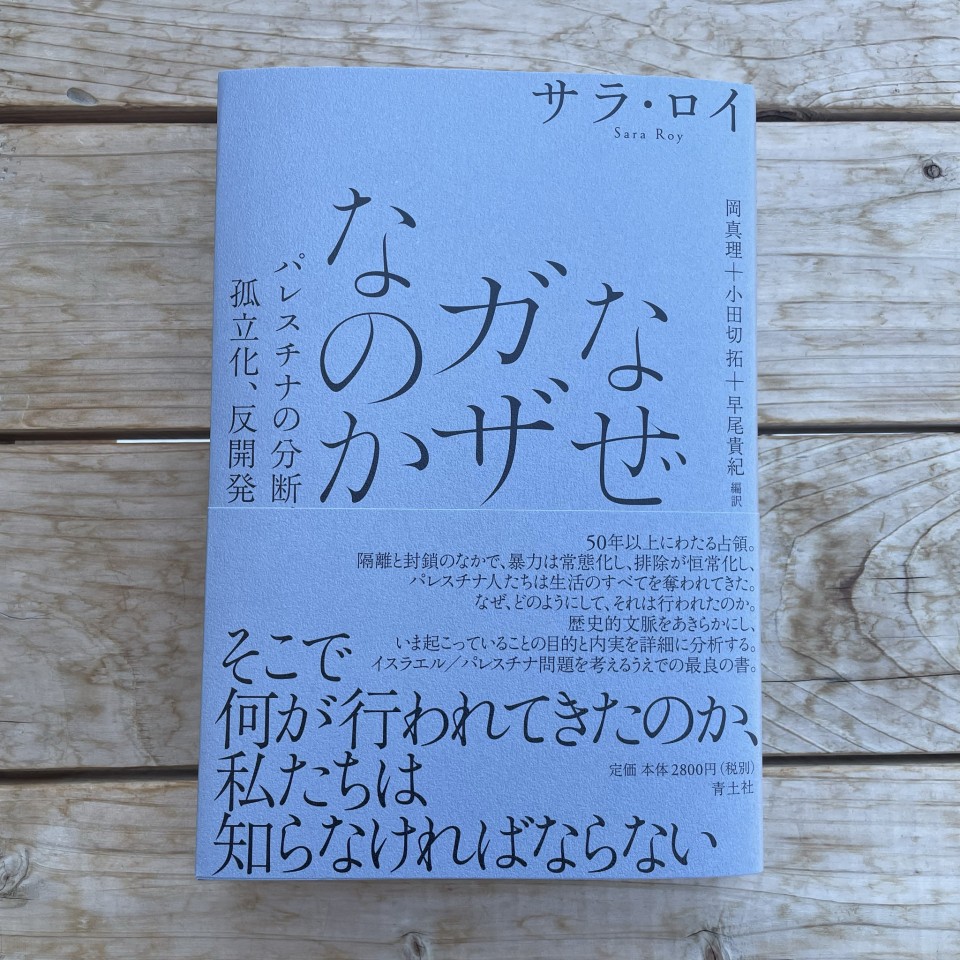 サラ・ロイ
Sara Roy
岡真理+小田切拓+早尾貴紀 編訳
なぜ
ガザ
なのか
パレスチナの分断、
孤立化、反開発
50年以上にわたる占領。
隔離と封鎖のなかで、暴力は常態化し、排除が恒常化し、
パレスチナ人たちは生活のすべてを奪われてきた。
なぜ、どのようにして、それは行われたのか。
歴史的文脈をあきらかにし、
いま起こっていることの目的と内実を詳細に分析する。
イスラエル/パレスチナ問題を考えるうえでの最良の書。
そこで
何が行われてきたのか、
私たちは
知らなければならない
定価 本体2800円(税別)
青土社